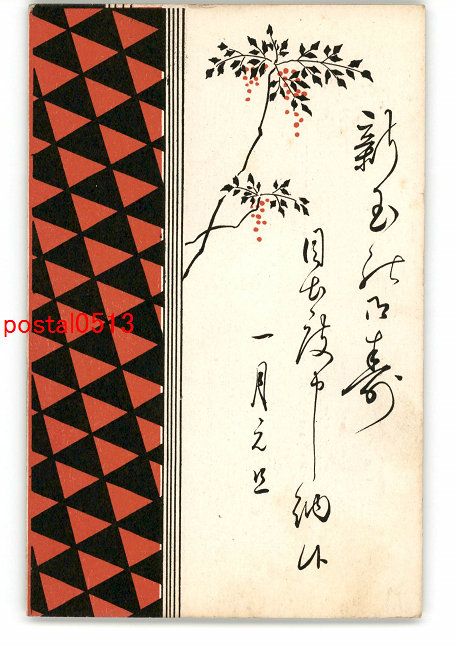 新玉の御寿
目出度申し納候
一月元旦
postal0513